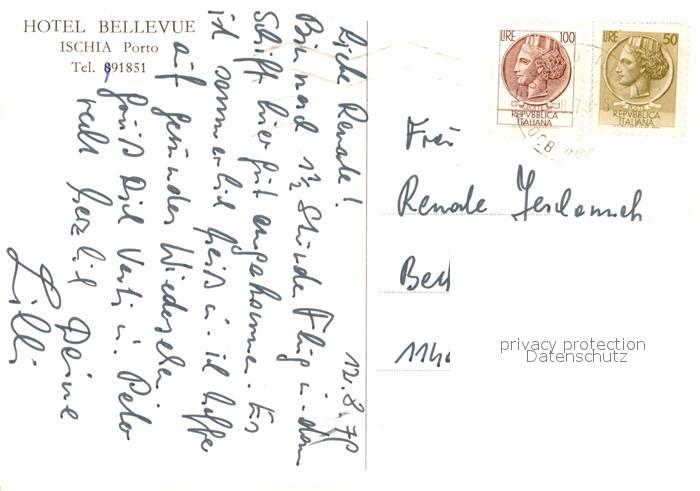 HOTEL BELLEVUE
ISCHIA Porto
Tel. 891851
12.8.78
Liebe Renate!
Bin nach 1½ Stunde Flug u. dann
Schiff hier gut angekommen. Es
ist sommerlich heiß u. ich hoffe
auf gesundes Wiedersehen
Grüß Dich Vati u. Peter
recht herzlich Deine
Lilli
LIRE 100
POSTE
REPVBBLICA
ITALIANA
LIRE 50
POSTE
REPVBBLICA
ITALIANA
Frau
Renate
Be
114
privacy protection
Datenschutz